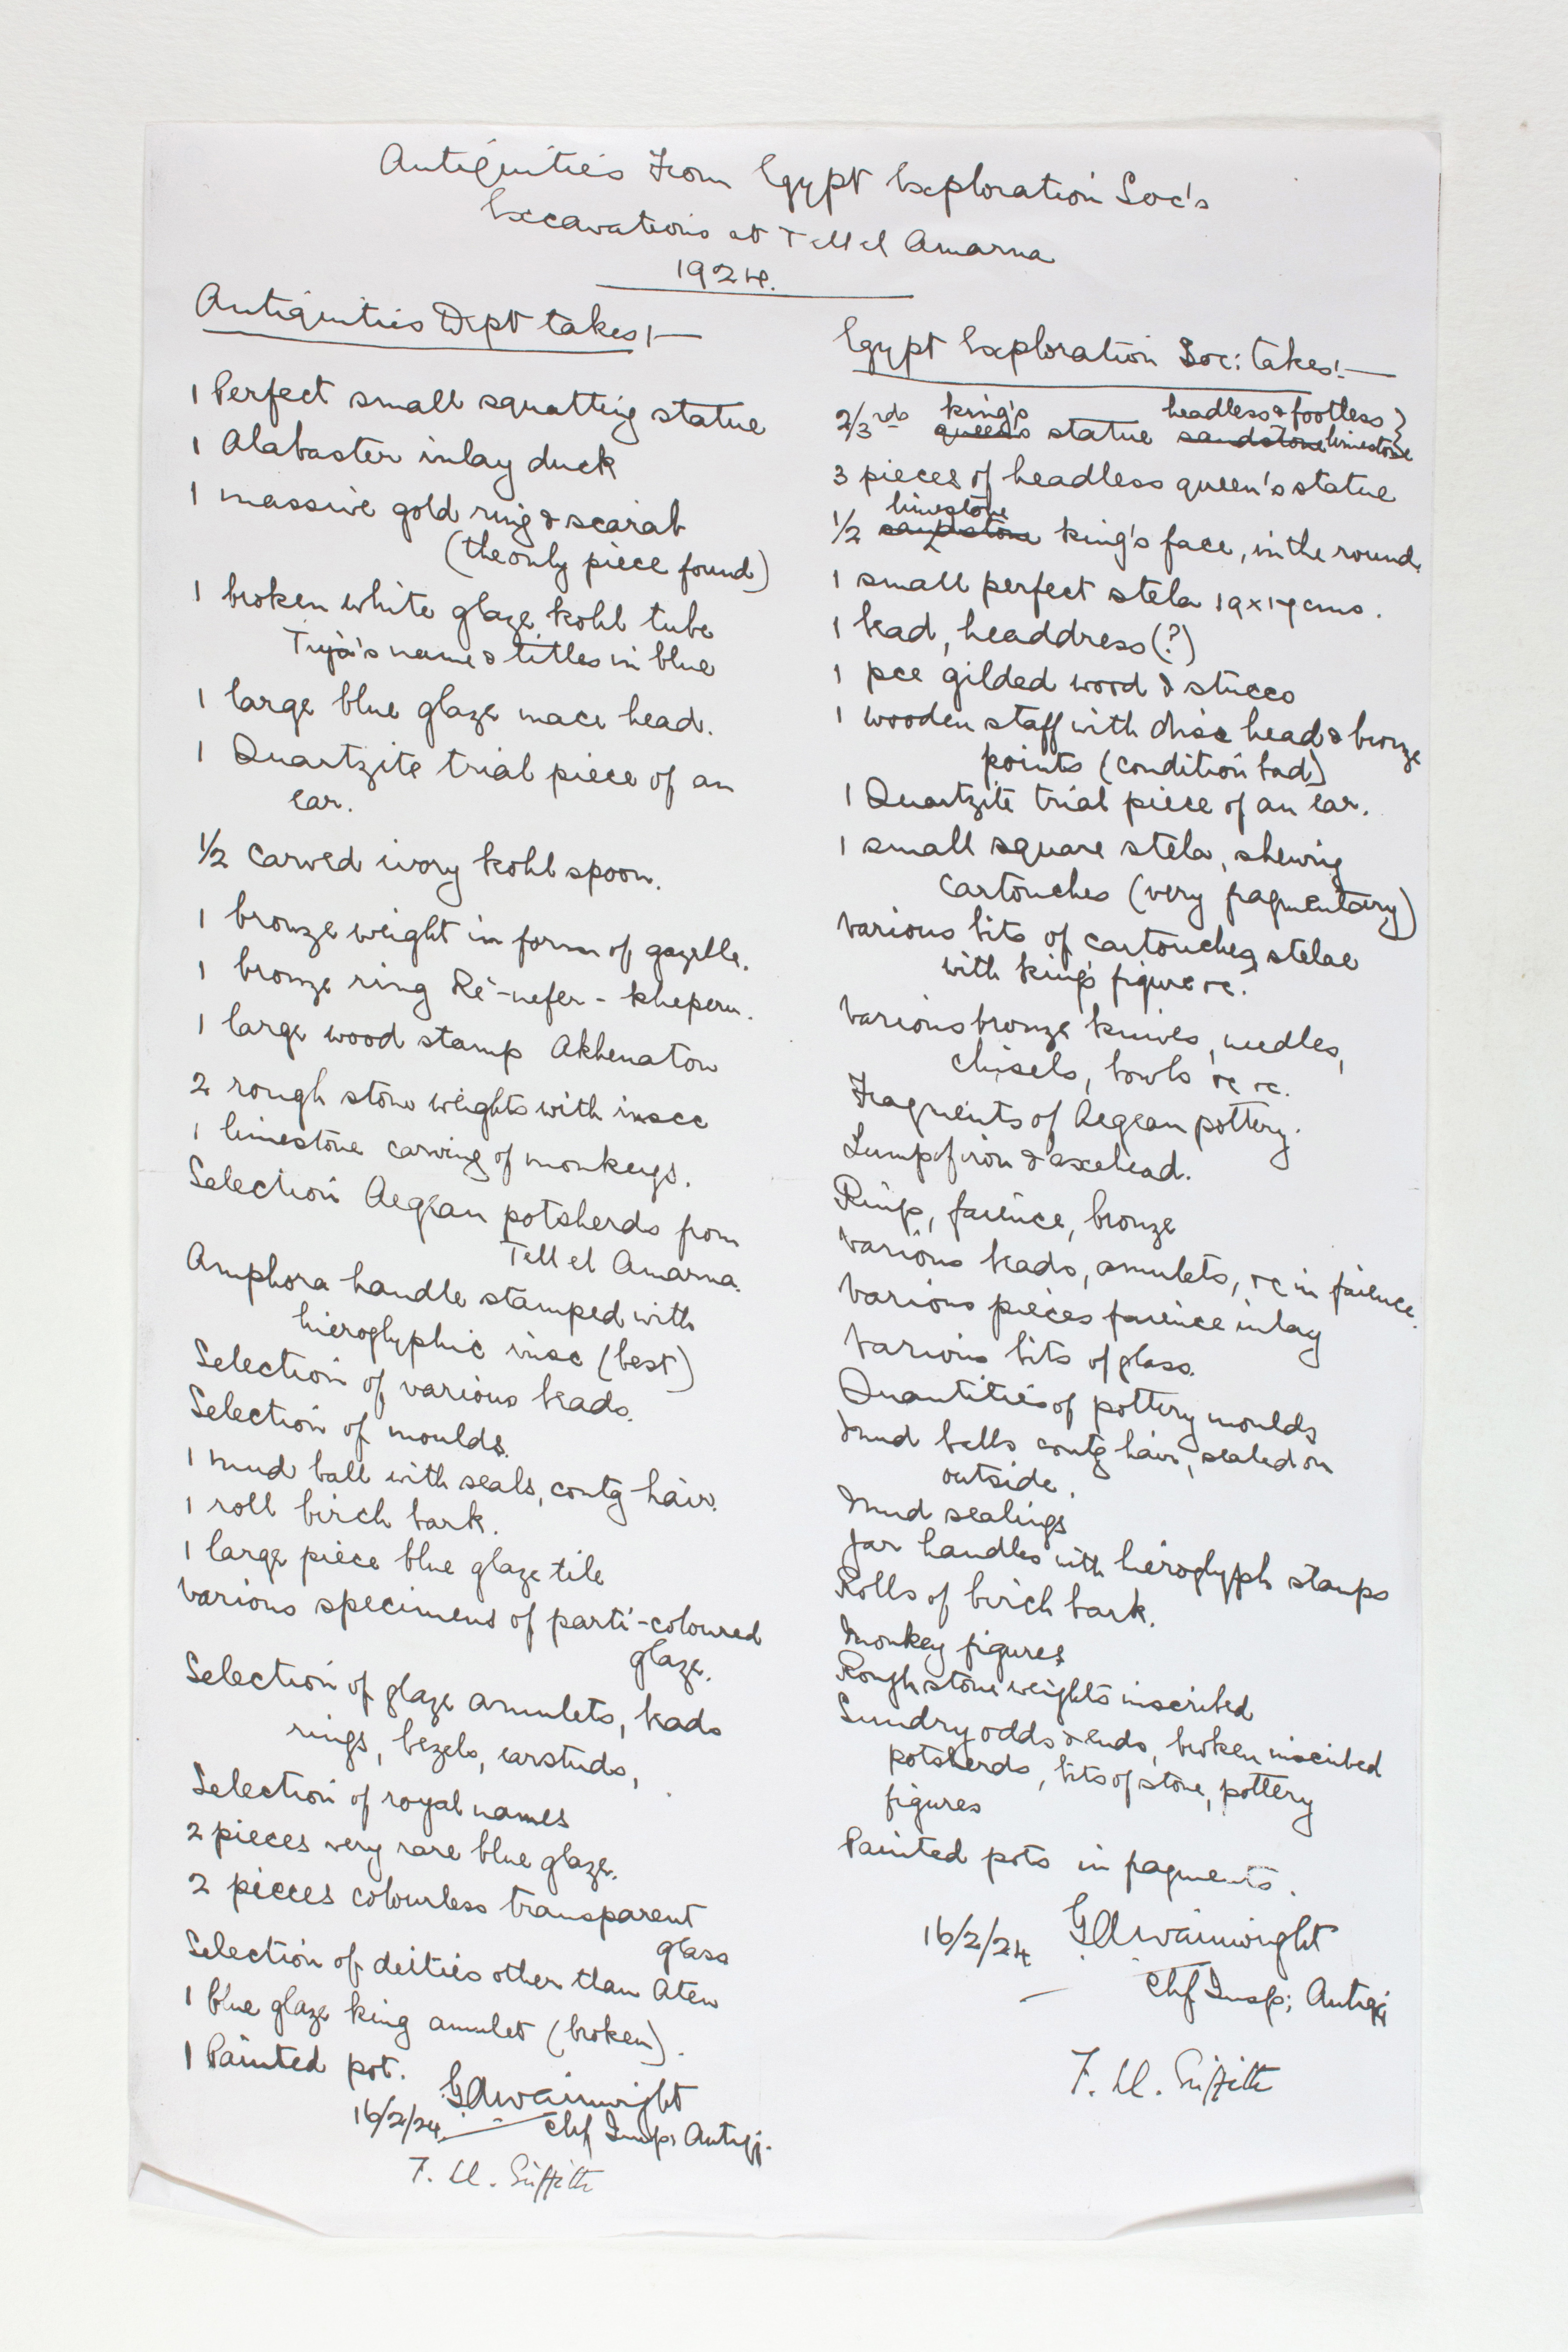 Antiquities From Egypt Exploration Soc's
Excavations at Tell el Amarna
1924.
Antiquities Dept takes:—
1 Perfect small squatting statue
1 Alabaster inlay duck
1 massive gold ring & scarab
(the only piece found)
1 broken white glaze kohl tube
name & titles in blue
1 large blue glaze mace head.
1 Quartzite trial piece of an
ear.
1/2 carved ivory kohl spoon.
1 bronze weight in form of gazelle.
1 bronze ring Re-nefer-kheperu.
1 large wood stamp Akhenaton
2 rough stone weights with insec
1 limestone carving of monkeys.
Selection Aegean potsherds from
Tell el Amarna.
Amphora handle stamped with
hieroglyphic insc (best)
Selection of various beads.
Selection of moulds.
1 mud ball with seals, contg hair.
1 roll birch bark.
1 large piece blue glaze tile
Various specimens of parti-coloured
glaze.
Selection of glaze amulets, beads
rings, bezels, earstuds,
Selection of royal names
2 pieces very rare blue glaze.
2 pieces colourless transparent
glass
Selection of deities other than Aten
1 blue glaze king amulet (broken).
1 Painted pot.
G A Wainwright
16/2/24 Chf Insp: Antiq:
F. Ll. Griffith
Egypt Exploration Soc: takes:—
king's headless & footless
2/3rds queen's statue sandstone limestone
3 pieces of headless queen's statue
limestone
1/2 sandstone king's face, in the round.
1 small perfect stela cms.
1 bead, headdress (?)
1 pce gilded wood & stucco
1 wooden staff with disc head & bronze
points (condition bad)
1 Quartzite trial piece of an ear.
1 small square stela, shewing
cartouches (very fragmentary)
Various bits of cartouches, stelae
with king's figure &c.
Various bronze knives, needles,
chisels, bowls &c &c.
Fragments of Aegean pottery.
Lump of iron & axehead.
Rings, faience, bronze
Various beads, amulets, &c in faience.
Various pieces faience inlay
Various bits of glass.
Quantities of pottery moulds
Mud balls contg hair, sealed on
outside.
Mud sealings
Jar handles with hieroglyph stamps
Rolls of birch bark.
Monkey figures
Rough stone weights inscribed
Sundry odds & ends, broken inscribed
potsherds, bits of stone, pottery
figures
Painted pots in fragments.
16/2/24 G A Wainwright
Chf Insp: Antiq:
F. Ll. Griffith